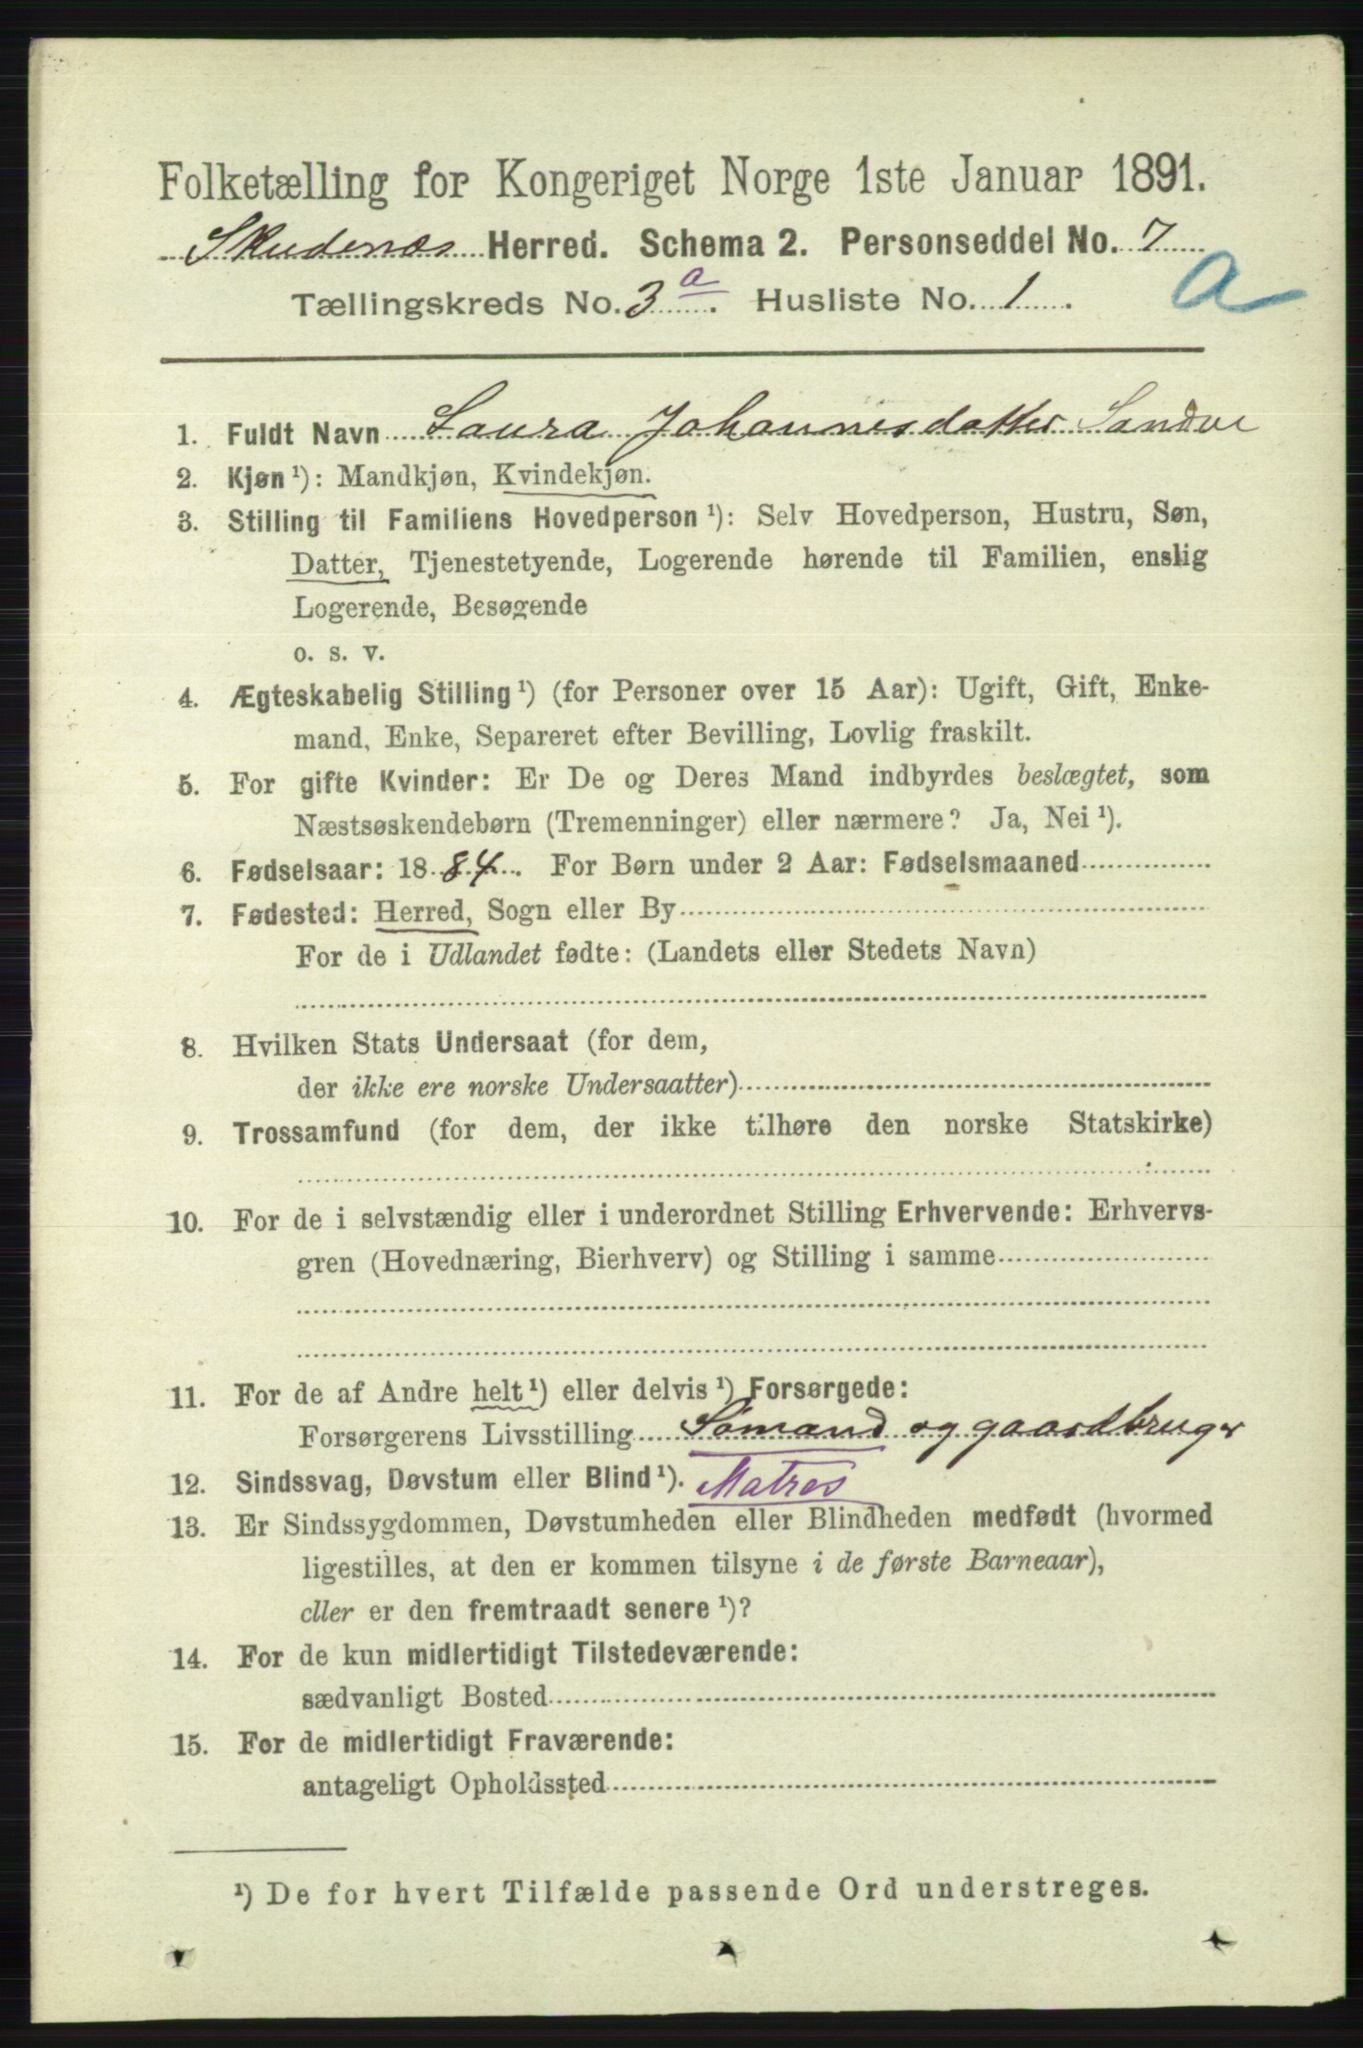 Folketælling for Kongeriget Norge 1ste Januar 1891.
Skudenæs Herred. Schema 2. Personseddel No. 7
Tællingskreds No. 3 a. Husliste No. 1. a
1. Fuldt Navn Laura Johannesdatter Sandve
2. Kjøn ¹): Mandkjøn, Kvindekjøn.
3. Stilling til Familiens Hovedperson ¹): Selv Hovedperson, Hustru, Søn,
Datter, Tjenestetyende, Logerende hørende til Familien, enslig
Logerende, Besøgende
o. s. v.
4. Ægteskabelig Stilling ¹) (for Personer over 15 Aar): Ugift, Gift, Enke-
mand, Enke, Separeret efter Bevilling, Lovlig fraskilt.
5. For gifte Kvinder: Er De og Deres Mand indbyrdes beslægtet, som
Næstsøskendebørn (Tremenninger) eller nærmere? Ja, Nei ¹).
6. Fødselsaar: 1884. For Børn under 2 Aar: Fødselsmaaned
7. Fødested: Herred, Sogn eller By
For de i Udlandet fødte: (Landets eller Stedets Navn)
8. Hvilken Stats Undersaat (for dem,
der ikke ere norske Undersaatter)
9. Trossamfund (for dem, der ikke tilhøre den norske Statskirke)
10. For de i selvstændig eller i underordnet Stilling Erhvervende: Erhvervs-
gren (Hovednæring, Bierhverv) og Stilling i samme
11. For de af Andre helt ¹) eller delvis ¹) Forsørgede:
Forsørgerens Livsstilling Sømand og gaardbruger
12. Sindssvag, Døvstum eller Blind ¹). Matros
13. Er Sindssygdommen, Døvstumheden eller Blindheden medfødt (hvormed
ligestilles, at den er kommen tilsyne i de første Barneaar),
eller er den fremtraadt senere ¹)?
14. For de kun midlertidigt Tilstedeværende:
sædvanligt Bosted
15. For de midlertidigt Fraværende:
antageligt Opholdssted
¹) De for hvert Tilfælde passende Ord understreges.